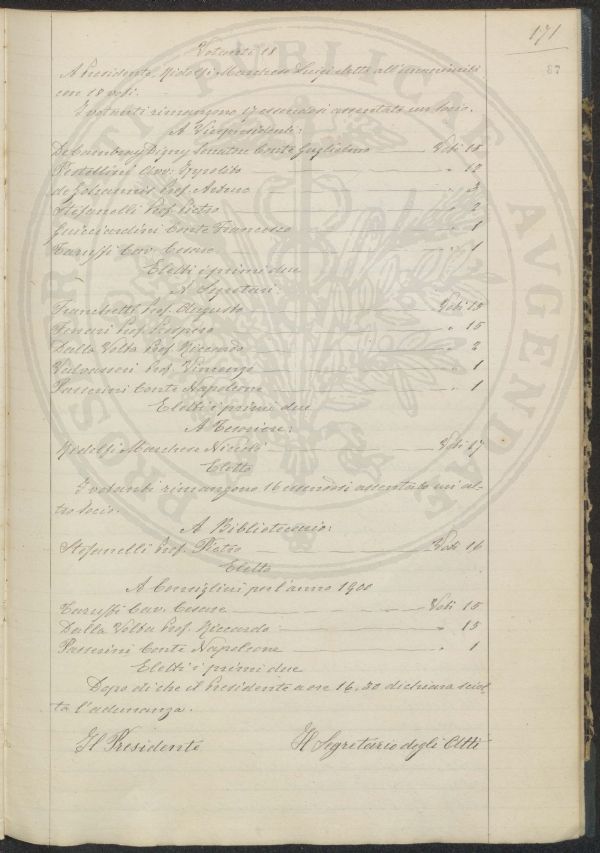 171
87
Votanti 18
A Presidente, Ridolfi Marchese Luigi eletto all'unanimità
con 18 voti.
I votanti rimangono 17 essendosi assentato un socio.
A Vicepresidenti:
De Cambray Digny Senatore Conte Guglielmo — Voti 15
Pestellini Avv. Ippolito — " 12
de Johannis Prof. Arturo — " 3
Stefanelli Prof. Pietro — " 2
Guicciardini Conte Francesco — " 1
Taruffi Cav. Cesare — " 1
Eletti i primi due
A Segretari:
Franchetti Prof. Augusto — Voti 15
Ferrari Prof. Prospero — " 15
Dalla Volta Prof. Riccardo — " 2
Valvassori Prof. Vincenzo — " 1
Passerini Conte Napoleone — " 1
Eletti i primi due
A Tesoriere:
Ridolfi Marchese Niccolò — Voti 17
Eletto
I votanti rimangono 16 essendosi assentato un al-
tro socio.
A Bibliotecario:
Stefanelli Prof. Pietro — Voti 16
Eletto
A Consiglieri per l'anno 1900
Taruffi Cav. Cesare — Voti 15
Dalla Volta Prof. Riccardo — " 15
Passerini Conte Napoleone — " 1
Eletti i primi due
Dopo di che il Presidente a ore 16,30 dichiara sciol-
ta l'adunanza.
Il Presidente Il Segretario degli Atti
PROSPERITATI PUBLICAE AUGENDAE